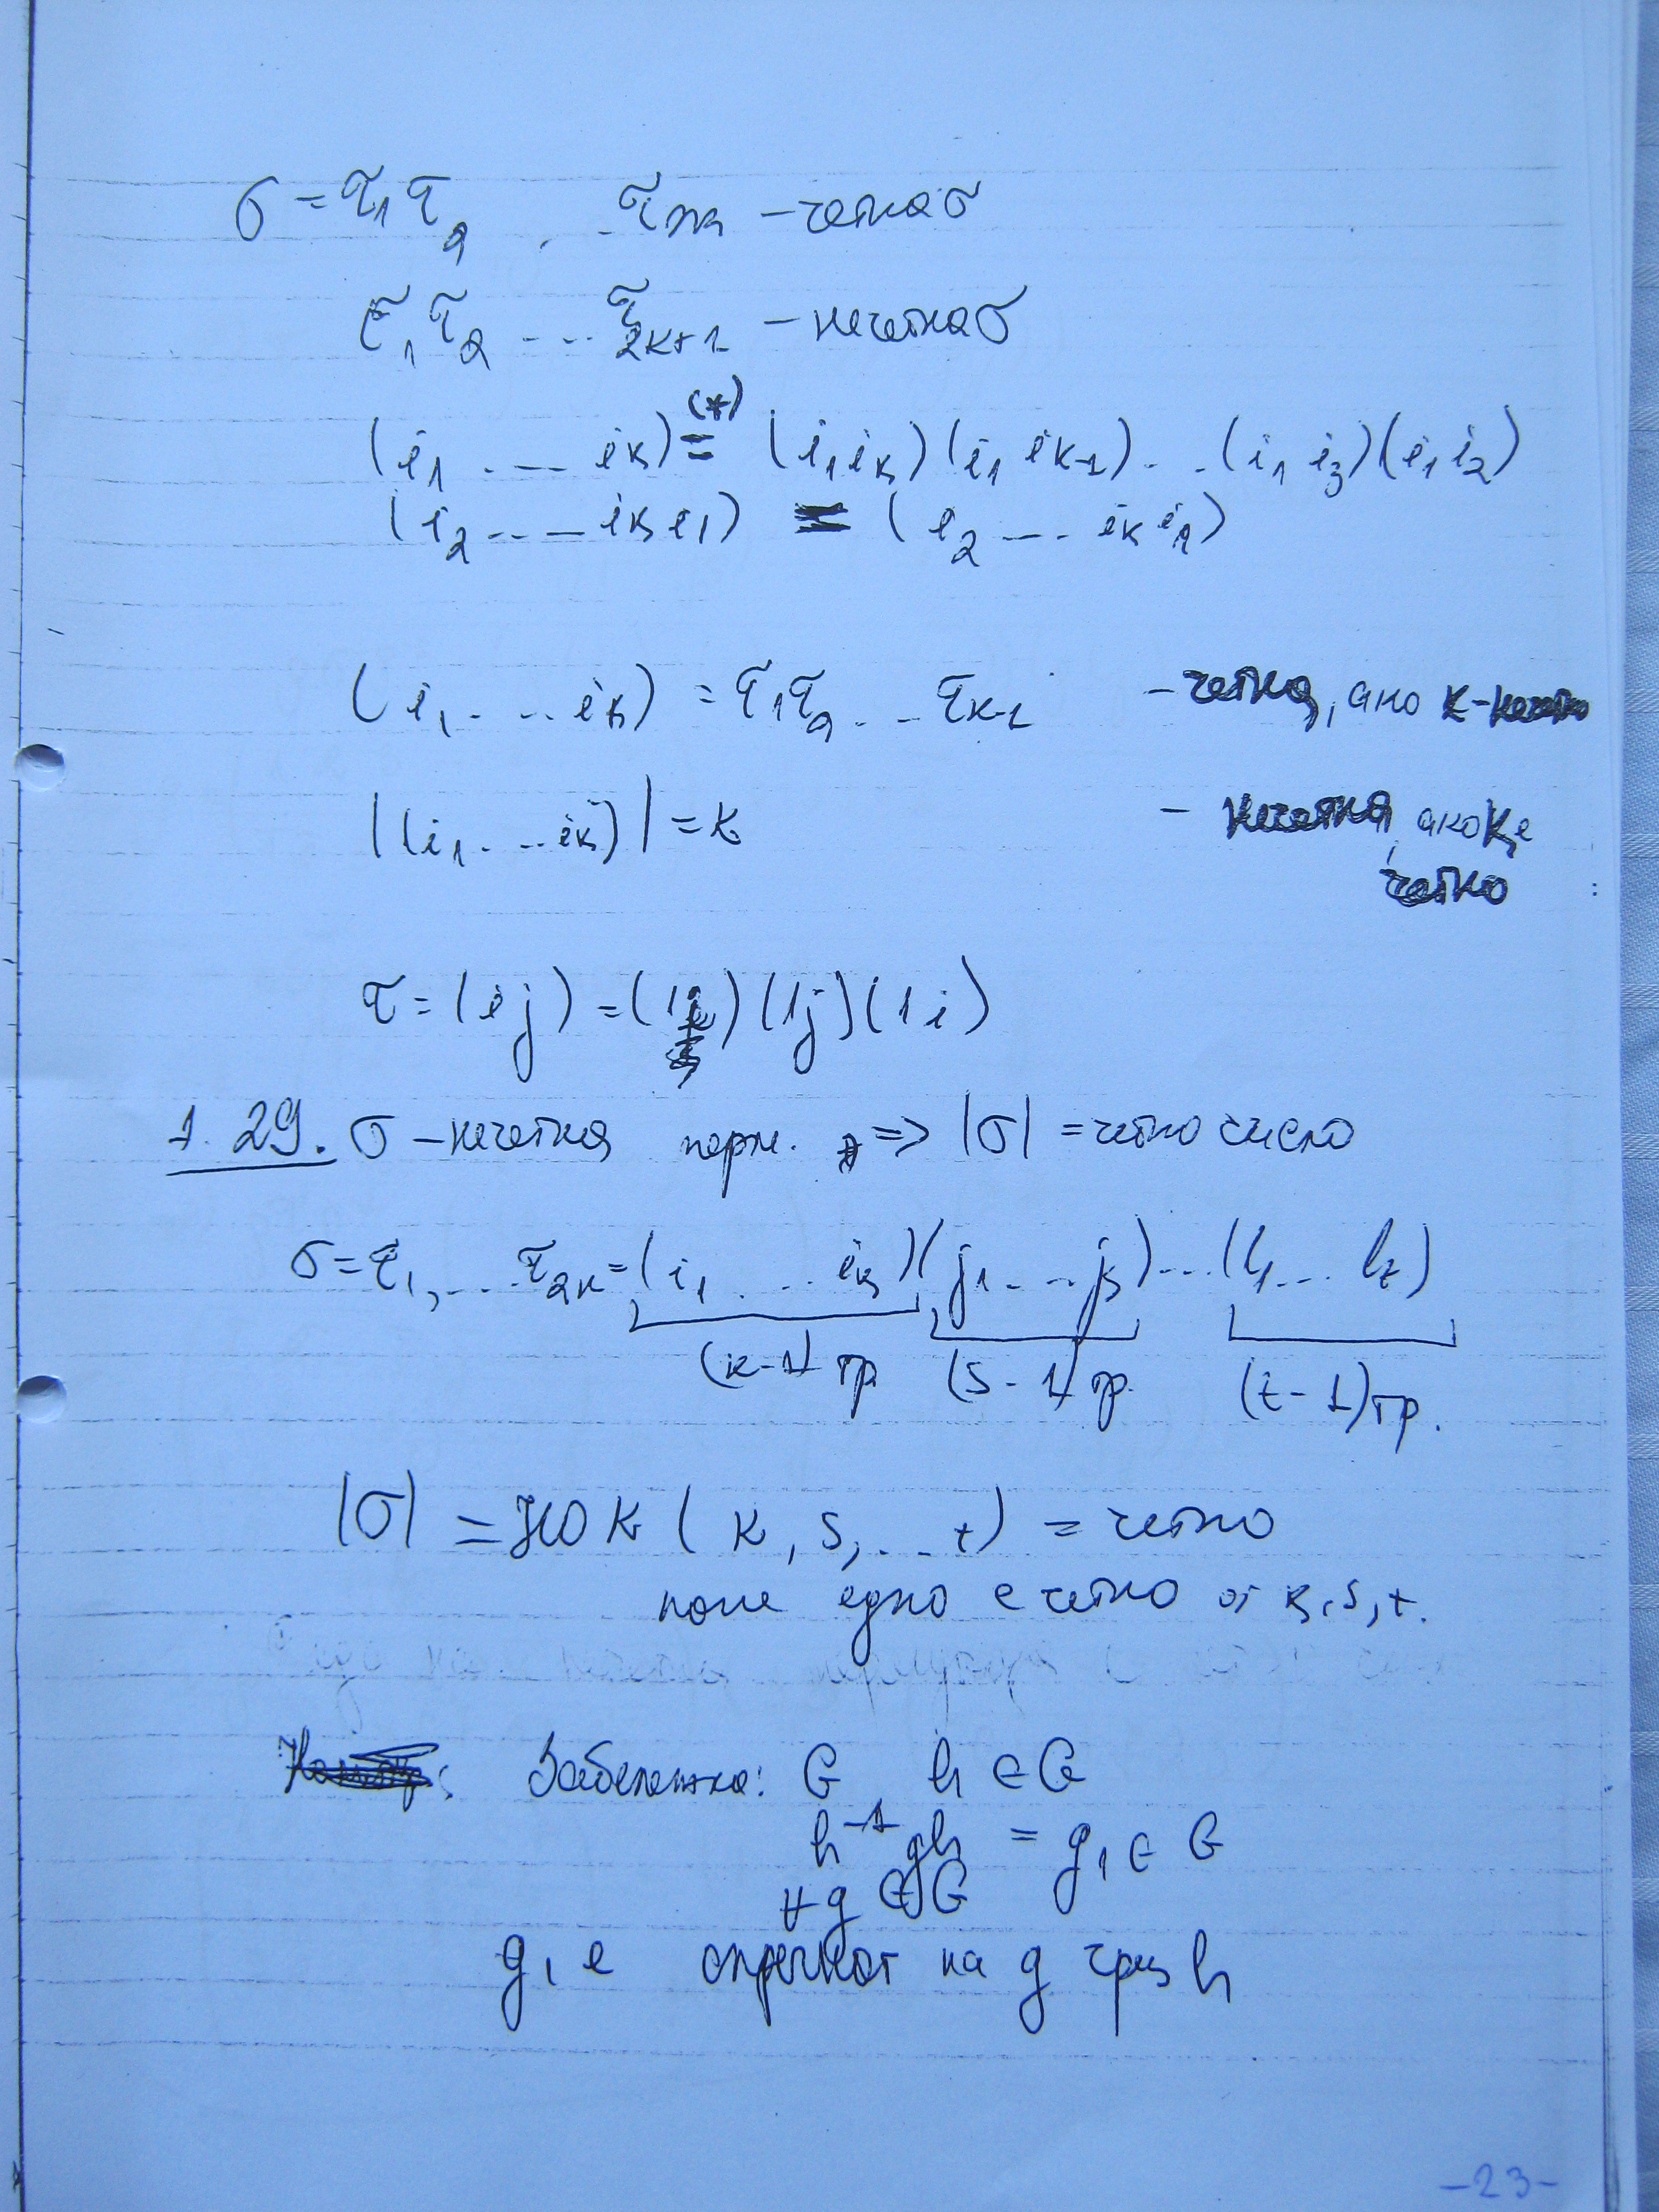 σ = τ₁τ₂ . . τ₂ₖ – четна σ
τ₁τ₂ ... τ₂ₖ₊₁ – нечетна σ
(i₁ ... iₖ) (*)= (i₁iₖ)(i₁ iₖ₋₁) . . (i₁ i₃)(i₁i₂)
(i₂ ... iₖ i₁) = (i₂ ... iₖ i₁)
(i₁ ... iₖ) = τ₁τ₂ ... τₖ₋₁ – четна, ако k – нечетно
|(i₁ ... iₖ)| = k – нечетна, ако k е
четно
τ = (i j) = (1i)(1j)(1i)
1. 29. σ – нечетна перм. => |σ| = четно число
σ = τ₁, ... τ₂ₖ = (i₁ ... iₖ)(j₁ ... jₛ) ... (l₁ ... lₜ)
(k-1) тр (s-1) тр. (t-1) тр.
|σ| = НОК (k, s, ... t) = четно
поне едно е четно от k, s, t.
Забележка: G h ∈ G
h⁻¹gh = g₁ ∈ G
∀ g ∈ G
g₁ е спрегнат на g чрез h
-23-